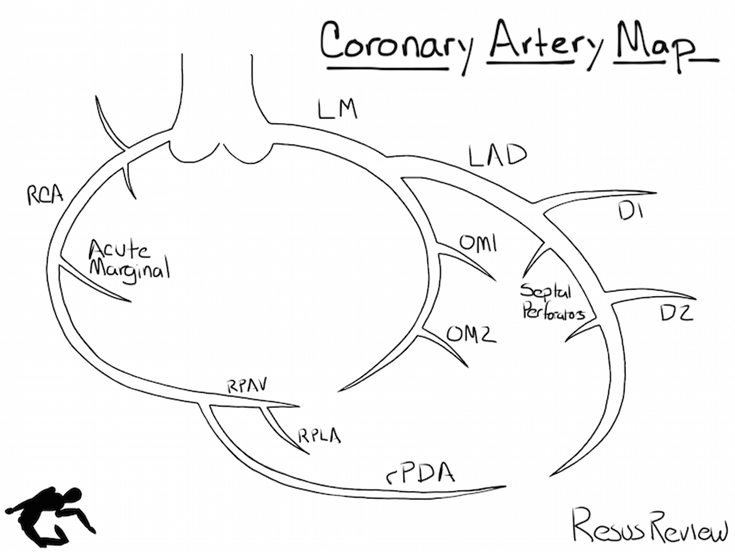 Coronary Artery Map
LM
LAD
RCA
D1
Acute
Marginal
OM1
Septal
Perforators
D2
OM2
RPAV
RPLA
rPDA
ResusReview